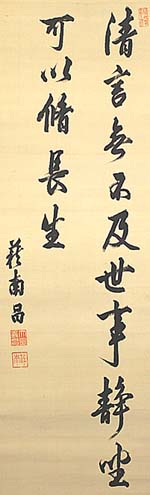 清言每不及世事靜坐
可以脩長生
南昌